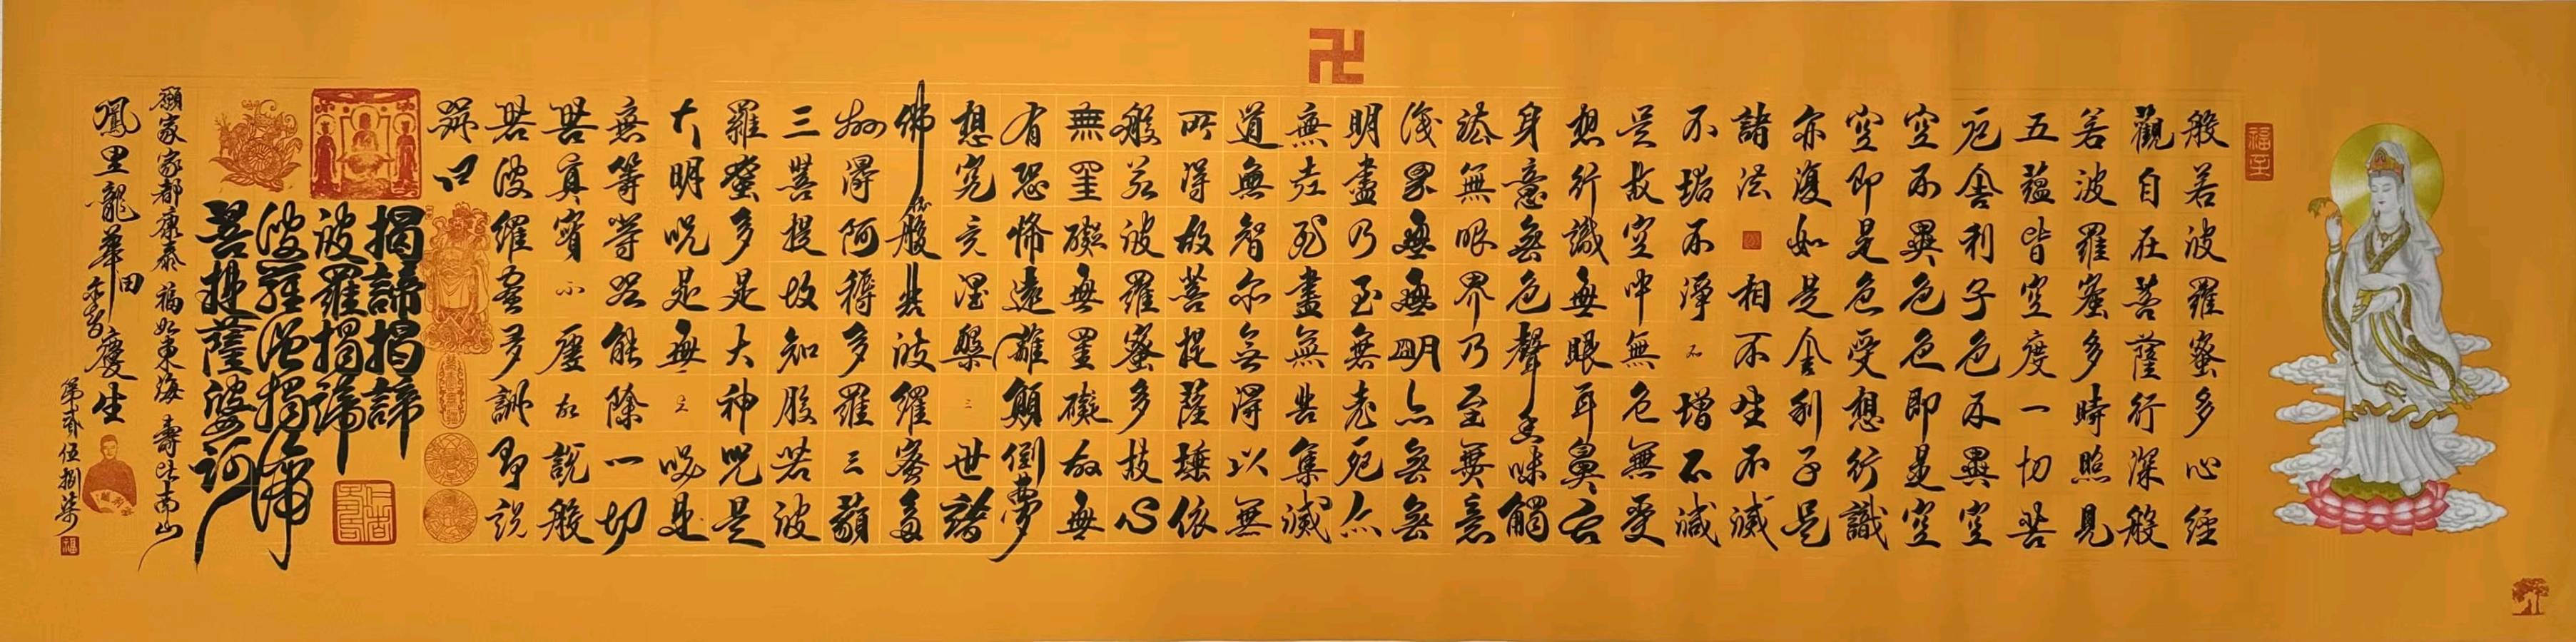 福至
般若波羅蜜多心經
觀自在菩薩行深般
若波羅蜜多時照見
五蘊皆空度一切苦
厄舍利子色不異空
空不異色色即是空
空即是色受想行識
亦復如是舍利子是
諸法相不生不滅
不垢不淨不增不減
是故空中無色無受
想行識無眼耳鼻舌
身意無色聲香味觸
法無眼界乃至無意
識界無無明亦無無
明盡乃至無老死亦
無老死盡無苦集滅
道無智亦無得以無
所得故菩提薩埵依
般若波羅蜜多故心
無罣礙無罣礙故無
有恐怖遠離顛倒夢
想究竟涅槃三世諸
佛依般若波羅蜜多
故得阿耨多羅三藐
三菩提故知般若波
羅蜜多是大神咒是
大明咒是無上咒是
無等等咒能除一切
苦真實不虛故說般
若波羅蜜多咒即說
咒曰
揭諦揭諦
波羅揭諦
波羅僧揭諦
菩提薩婆訶
願家家都康泰福如東海壽比南山
鳳里龍華田慶生
第貳伍捌柒
福